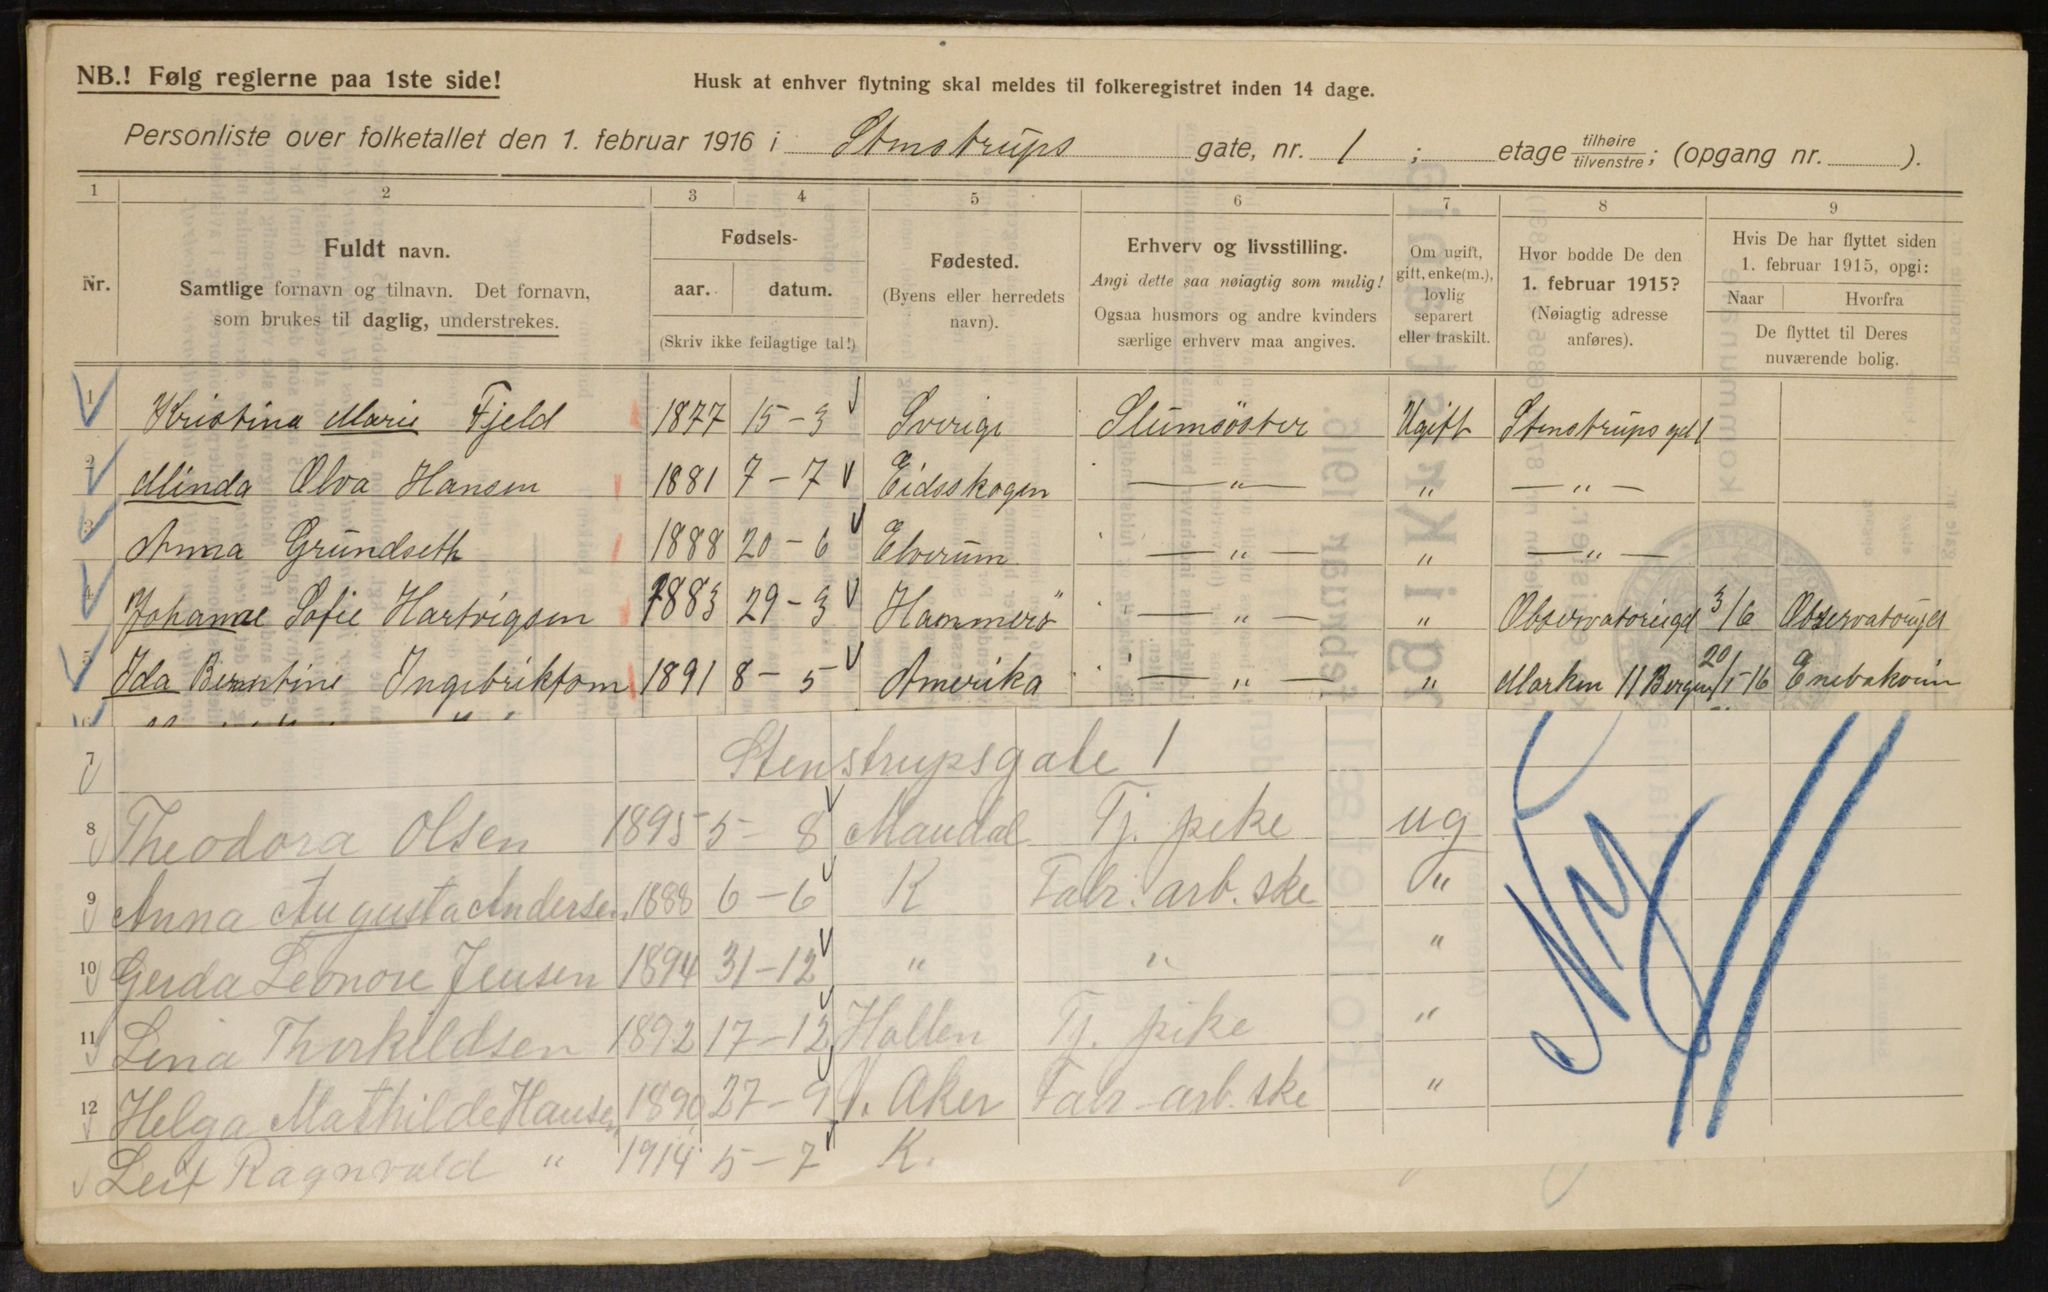 NB.! Følg reglerne paa 1ste side!
Husk at enhver flytning skal meldes til folkeregistret inden 14 dage.
Personliste over folketallet den 1. februar 1916 i Stenstrups gate, nr. 1 ; etage tilhøire tilvenstre; (opgang nr. ).
1 2 3 4 5 6 7 8 9
Nr.
Fuldt navn.
Samtlige fornavn og tilnavn. Det fornavn,
som brukes til daglig, understrekes.
Fødsels-
aar. datum.
(Skriv ikke feilagtige tal!)
Fødested.
(Byens eller herredets
navn).
Erhverv og livsstilling.
Angi dette saa nøiagtig som mulig!
Ogsaa husmors og andre kvinders
særlige erhverv maa angives.
Om ugift,
gift, enke(m.),
lovlig
separert
eller fraskilt.
Hvor bodde De den
1. februar 1915?
(Nøiagtig adresse
anføres).
Hvis De har flyttet siden
1. februar 1915, opgi:
Naar Hvorfra
De flyttet til Deres
nuværende bolig.
1 Kristina Marie Fjeld 1877 15-3 Sverige Slumsöster Ugift Stenstrups gd 1
2 Minda Olva Hansen 1881 7-7 Eidsskogen — " — " — " —
3 Anna Grundseth 1888 20-6 Elverum — " — " — " —
4 Johanne Sofie Hartvigsen 1883 29-3 Hammerö — " — " Observatoriegt 3/6 Observatoriegt
5 Ida Berntine Ingebriktsen 1891 8-5 Amerika — " — " Marken 11 Bergen 20/1-16 Enebakvein
7 Stenstrupsgate 1
8 Theodora Olsen 1895 5-8 Mandal Tj. pike ug
9 Anna Augusta Andersen 1888 6-6 K Fabr. arb. ske "
10 Gerda Leonore Jensen 1894 31-12 " " "
11 Lina Thorkildsen 1892 17-12 Hollen Tj. pike "
12 Helga Mathilde Hansen 1890 27-9 V. Aker Fabr-arb. ske "
Leif Ragnvald " 1914 5-7 K.
Ny